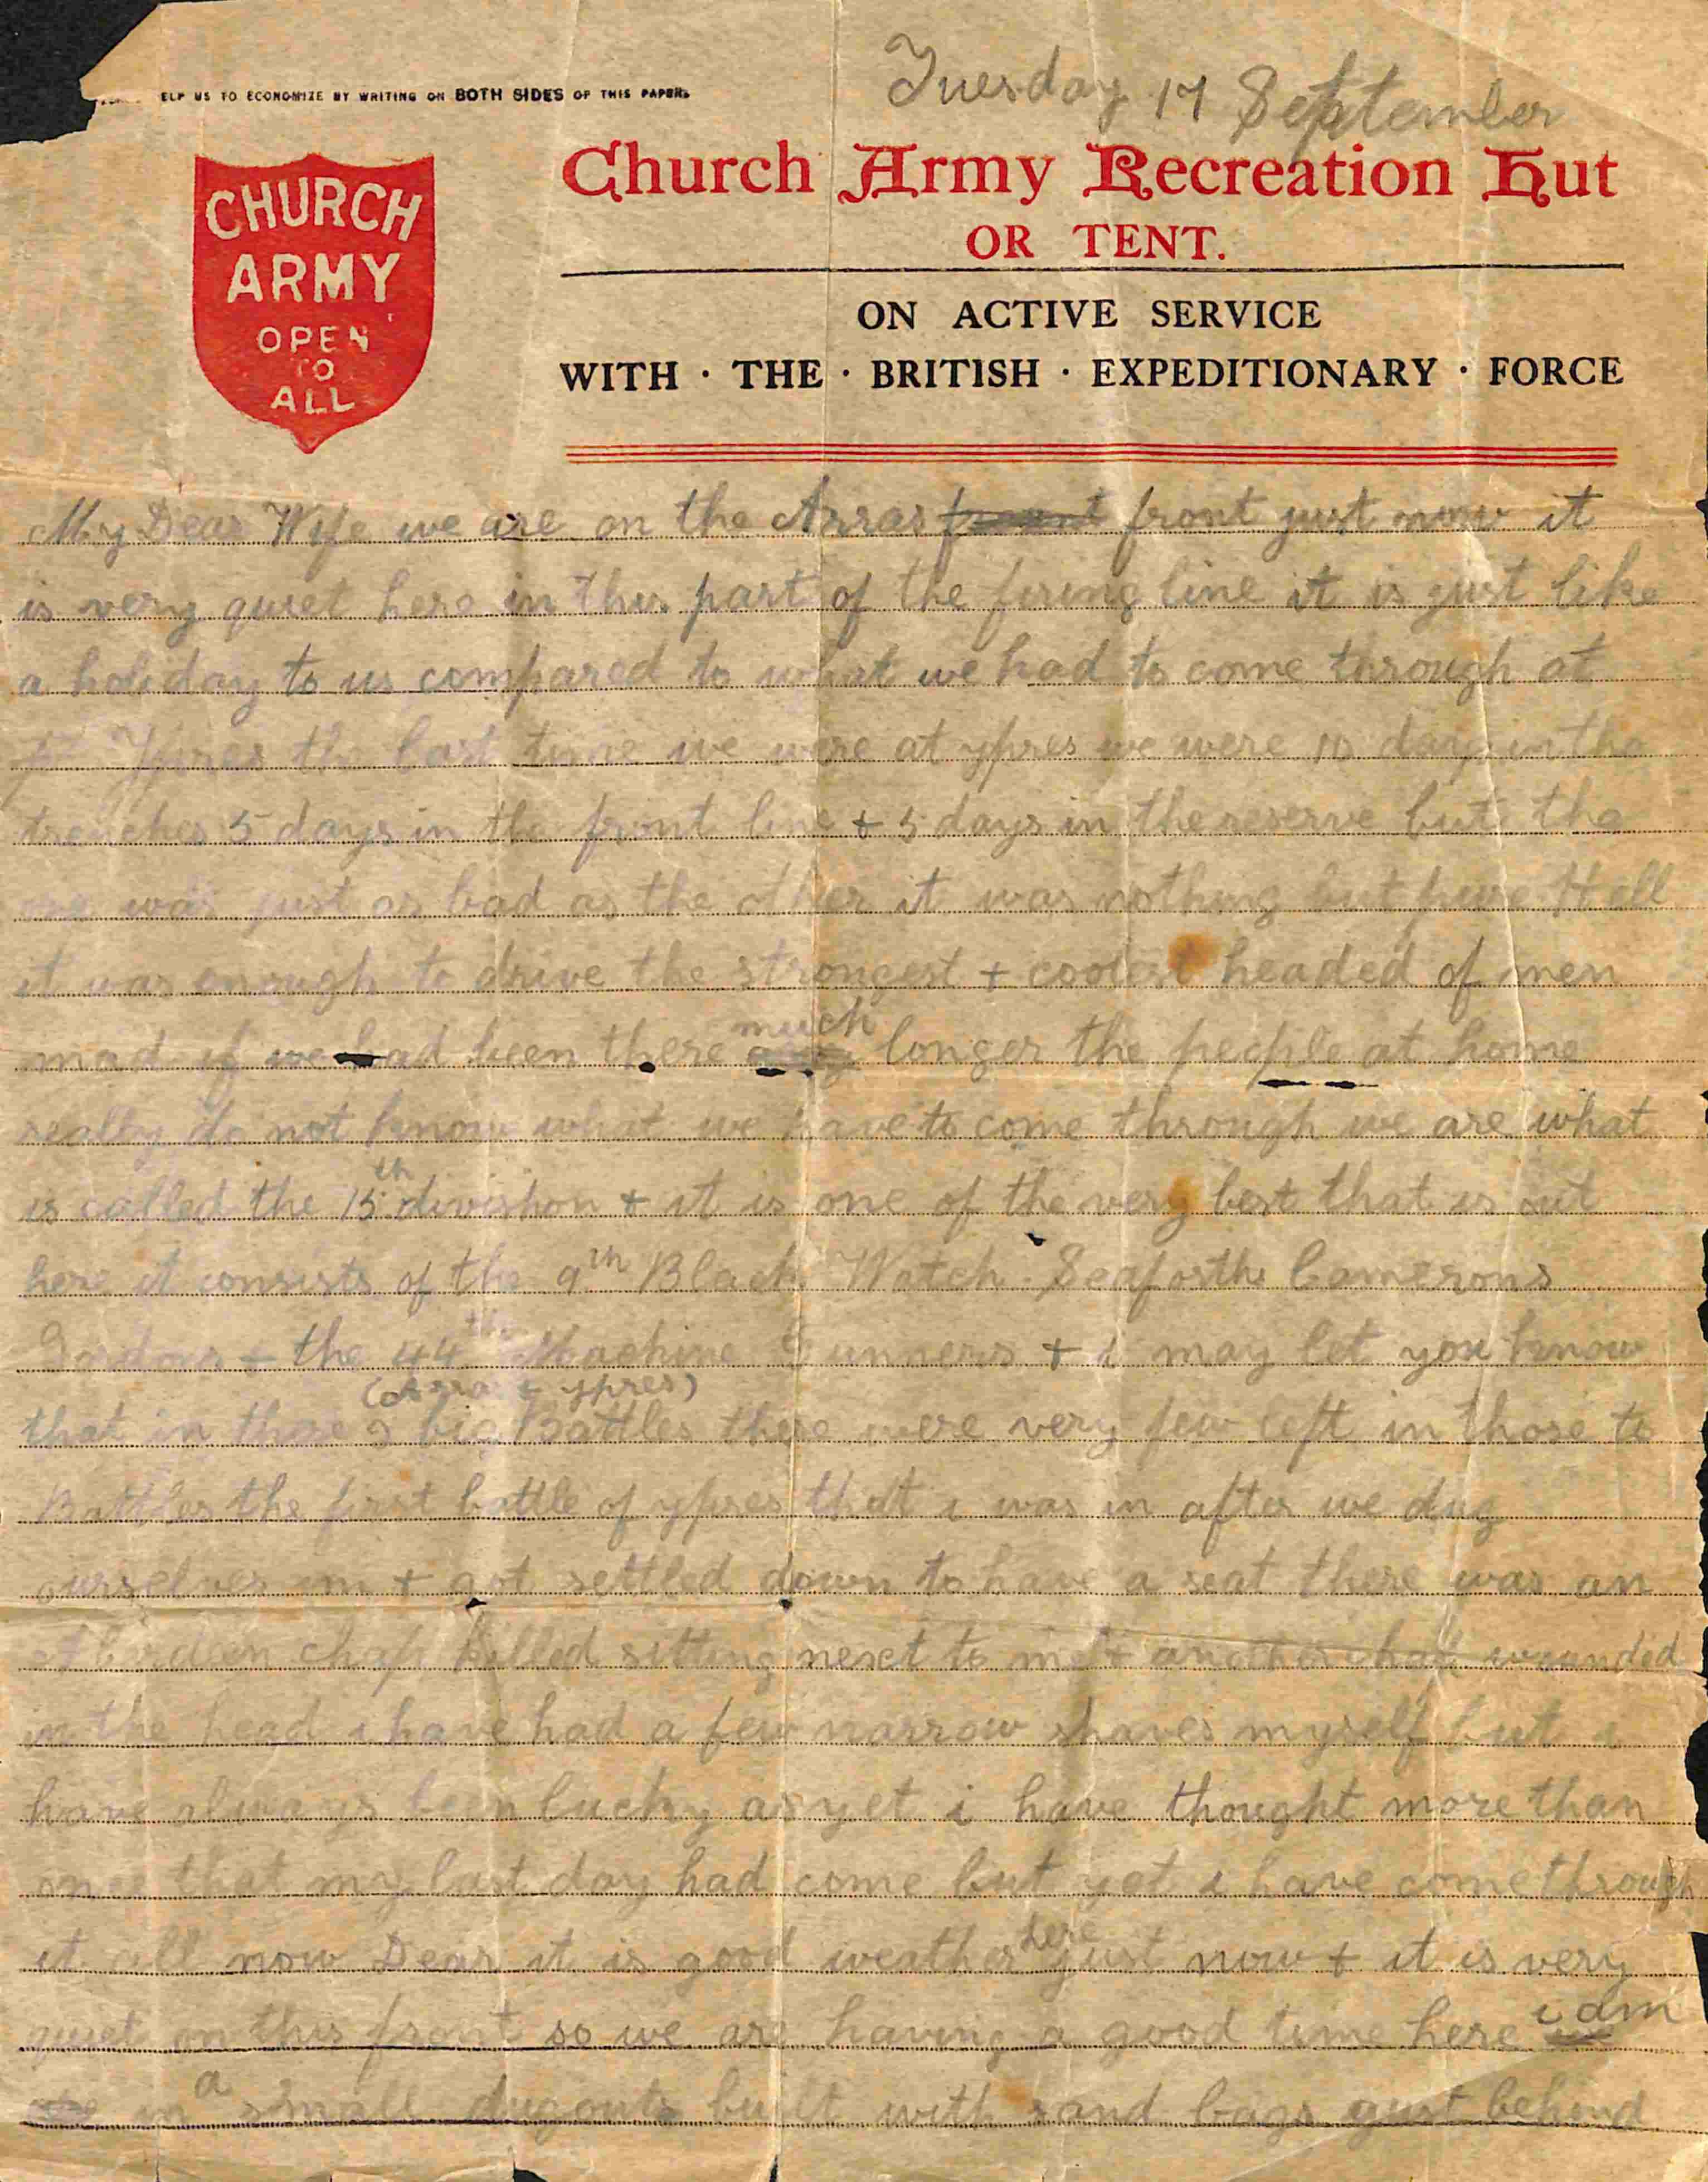 ELP US TO ECONOMIZE BY WRITING ON BOTH SIDES OF THIS PAPER.
Tuesday 17 September
CHURCH
ARMY
OPEN
TO
ALL
Church Army Recreation Hut
OR TENT.
ON ACTIVE SERVICE
WITH · THE · BRITISH · EXPEDITIONARY · FORCE
My Dear Wife we are on the Arras front just now it
is very quiet here in this part of the firing line it is just like
a holiday to us compared to what we had to come through at
Ypres the last time we were at ypres we were 10 days in the
trenches 5 days in the front line + 5 days in the reserve but the
one was just as bad as the other it was nothing but pure Hell
it was enough to drive the strongest + coolest headed of men
mad if we had been there much longer the people at home
really do not know what we have to come through we are what
is called the 15th division + it is one of the very best that is out
here it consists of the 9th Black Watch. Seaforths Camerons
Gordons + the 44th Machine Gunners + i may let you know
(Arras + ypres)
that in those 2 big Battles there were very few left in those to
Battles the first battle of ypres that i was in after we dug
ourselves in + got settled down to have a seat there was an
Aberdeen chap killed sitting next to me + another chap wounded
in the head i have had a few narrow shaves myself but i
have always been lucky as yet i have thought more than
once that my last day had come but yet i have come through
it all now Dear it is good weather here just now + it is very
quiet on this front so we are having a good time here i am
in a small dugouts built with sand bags just behind